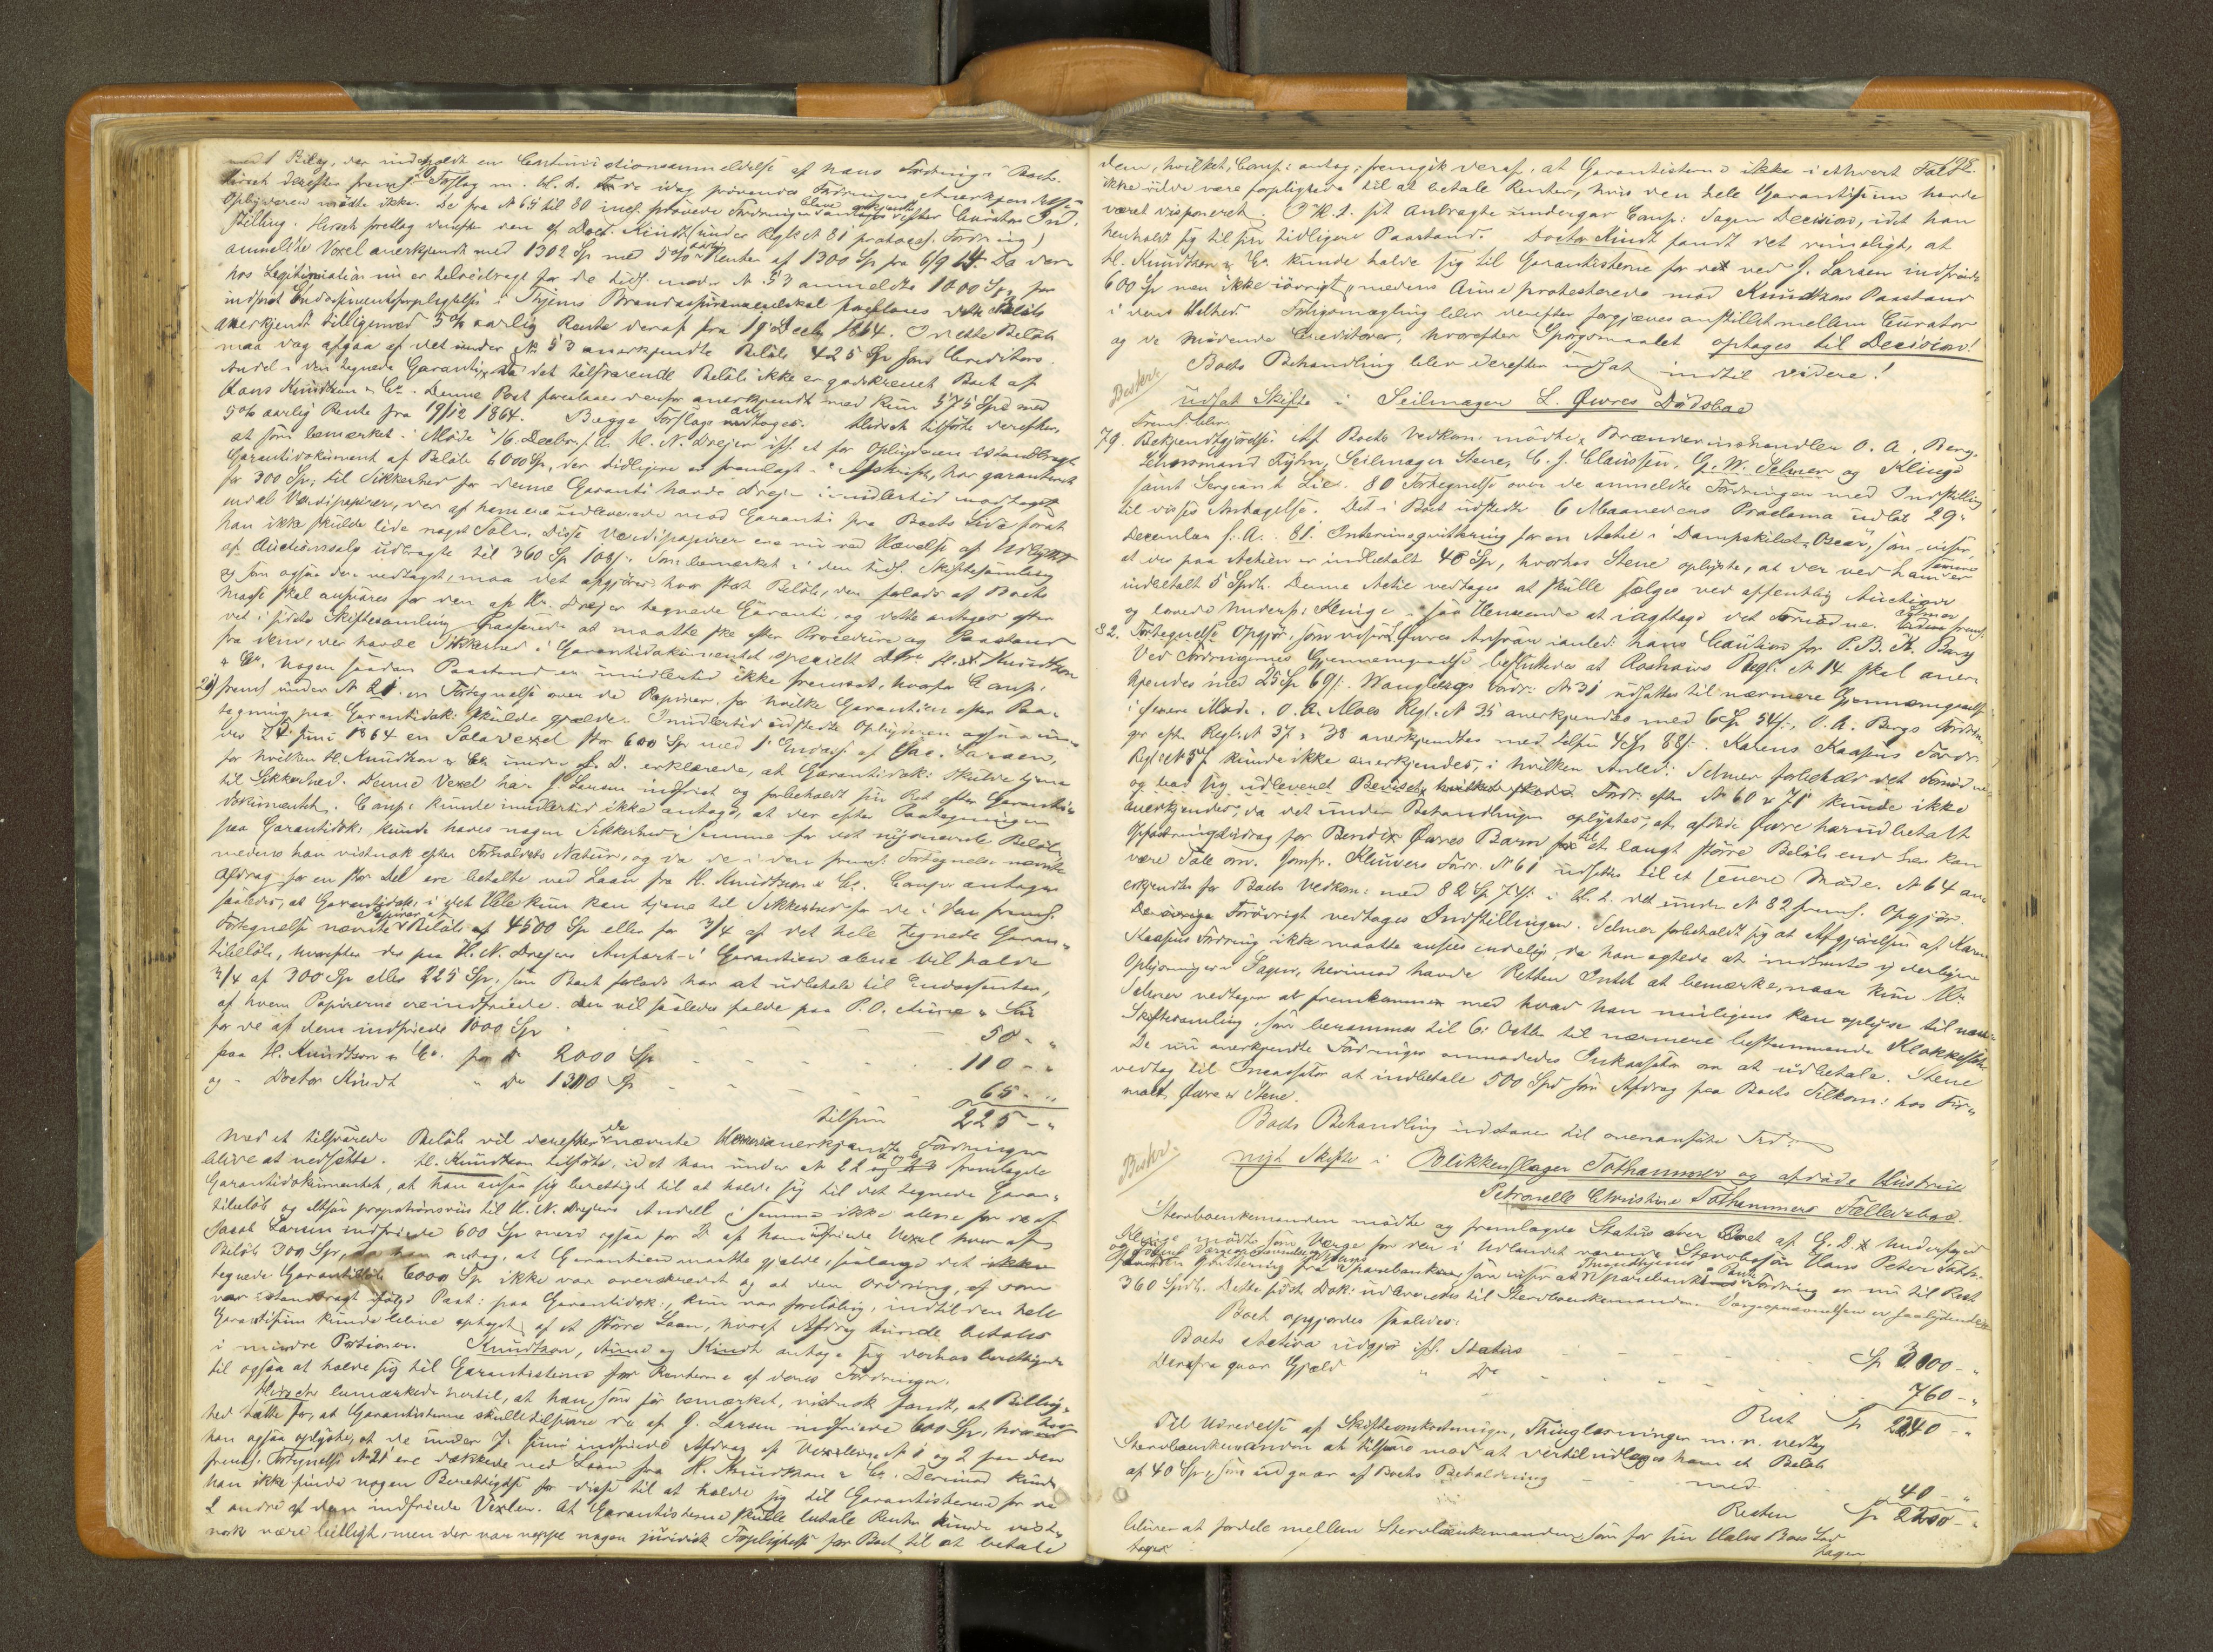 med 1 Bilag, der indeholdt en Continuationsanmeldelse af hans Fordring i Boet.
Hirsch derefter frems: Forslag m. H. t. de idag prøvende Fordringers Anerkjendelse
Opbyderen mødte ikke. De fra N 65 til 80 incl. prøvede Fordringer bleve anerkjendte efter Curators Ind-
stilling. Hirsch foretlog derefter den af Doct. Kindt (under Regl. N 81 protocol. Fordring)
anmeldte Vexel anerkjendt med 1302 Sp med 5 % aarlig Renter af 1300 Sp fra 6/9 14. Da den
hos Legitimation nu er tilveiebragt for de tidl. under N 53 anmeldte 1000 Sp, for
indfriet Endossementsforpligtelse i Thjems Brandassuranceselskab foreslaaes dette Beløb
anerkjendt tilligemed 5 % aarlig Rente deraf fra 19 Decbr 1864. I dette Beløb
maa dog afgaa af det under N 53 anerkjendte Beløb 425 Sp som Creditors
Andel i den tegnede Garanti, da det tilsvarende Beløb ikke er godskrevet Boet af
Hans Knudtzon & Co. Denne Post foreslaaes derfor anerkjendt med kun 575 Spd med
5 % aarlig Rente fra 19/12 1864. Begge Forslag antoges. Hirsch tilførte derefter,
at som bemærket i Møde 16. Decbr. f. A. H. N. Drejer iflg. et for Oplysen istandbragt
Garantidokument af Beløb 6000 Sp, der tidligere er fremlagt i Afskrift, har garanteret
for 300 Sp; til Sikkerhed for denne Garanti havde Drejer imidlertid modtaget
endel Værdipapirer, der af ham ere udleverede mod Garanti fra Boets Side forat
han ikke skulde lide noget Tab. Disse Værdipapirer ere nu ved Hævelse af
af Auctionssalg udbragte til 360 Sp 108 s. Som bemærket i den tidl. Skiftesamling
og som ogsaa der vedtaget, maa det afgjøres hvor stort Beløb, der forlods af Boets
Masse skal ansvares for den af Hr. Drejer tegnede Garanti, og dette antoges efter
det i sidste Skiftesamling Passerede at maatte ske efter Procedure og Paastand
fra dem, der havde Sikkerhed i Garantidokumentet, specielt H. Knudtzon
& Co. Nogen saadan Paastand er imidlertid ikke fremsat, hvorfor Comp.
21) frems under N 21 en Fortegnelse over de Papirer, for hvilke Garantien efter Paa-
tegning paa Garantidok: skulde gjælde. Imidlertid udstedte Opbyderen ogsaa un-
der 24 Juni 1864 en Solavexel stor 600 Sp med 1 Endoss. af Jac. Larsen,
for hvilken H. Knudtzon & Co under s. D. erklærede, at Garantidok: skulde tjene
til Sikkerhed. Denne Vexel har J. Larsen indfriet og forbeholdt sin Ret efter Garanti-
dokumentet. Comp: kunde imidlertid ikke antage, at der efter Paategningen
paa Garantidok: kunde haves nogen Sikkerhed i samme for det nysnævnte Beløb,
medens han vistnok efter Forholdets Natur, og da de i den frems: Fortegnelse nævnte
Afdrag for en stor Del ere betalte ved Laan fra H. Knudtzon & Co. Comp: antager
saaledes, at Garantidok: i det Hele kun kan tjene til Sikkerhed for de i den frems.
Fortegnelse nævnte Papirer, at Beløb af 4500 Sp eller for 3/4 af det hele tegnede Garan-
tibeløb, hvorefter der paa H. N. Drejers Anpart i Garantien alene vil falde
3/4 af 300 Sp eller 225 Sp, som Boet forlods har at udbetale til Endossenten,
af hvem Papirerne ere indfriede. Der vil saaledes falde paa P. O. Aune & Søn
for de af dem indfriede 1000 Sp - - - - 50 - "
paa H. Knudtzon & Co. for do 2000 Sp - - - 110 - "
og - Doctor Kindt " do 1300 Sp - - - 65 - "
tilsam 225 - "
Med et tilsvarende Beløb vil derefter de nævnte anerkjendte Fordringer
blive at nedsætte. H. Knudtzon tilførte, idet han under N 22 fremlagde
Garantidokumentet, at han ansaa sig berettiget til at holde sig til det tegnede Garan-
tibeløb og altsaa proportionsvis til H. N. Drejers Andel i samme ikke alene for de af
Jacob Larsen indfriede 600 Sp men ogsaa for D. af ham indfriede Vexel hver af
Beløb 300 Sp, da han antog, at Garantien maatte gjælde, saalænge det
tegnede Garantibeløb 6000 Sp ikke var overskredet og at den Ordning, af som
var istandbragt ifølge Paat: paa Garantidok:, kun var foreløbig, indtil den hele
Garantisum kunde blive optaget af et større Laan, hvoraf Afdrag kunde betales
i mindre Portioner. Knudtzon, Aune og Kindt antog sig derhos berettigede
til ogsaa at holde sig til Garantisterne for Renterne af deres Fordringer.
Hirsch bemærkede hertil, at han som før bemærket, vistnok fandt, at Billig-
hed talte for, at Garantisterne skulle tilsvare de af J. Larsen indfriede 600 Sp, hvorhos
han ogsaa oplyste, at de under 7. Juni indfriede Afdrag af Vexlerne N 1 og 2 paa den
frems: Fortegnelse N 21 ere dækkede ved Laan fra H. Knudtzon & Co. Derimod kunde
han ikke finde nogen Berettigelse for disse til at holde sig til Garantisterne for de
2 andre af dem indfriede Vexler. At Garantisterne skulle betale Renter kunde vist-
nok være billigt, men der var neppe nogen juridisk Forpligtelse for Boet til at betale
198.
dem, hvilket, Comp: antog, fremgik deraf, at Garantisterne ikke i ethvert Fald
ikke vilde være forpligtede til at betale Renter, hvis den hele Garantisum havde
været disponeret. I H. t. sit Anbragte undergav Comp: Sagen Decision, idet han
henholdt sig til sin tidligere Paastand. Doctor Kindt fandt det rimeligt, at
H. Knudtzon & Co. kunde holde sig til Garantisterne for det ved J. Larsen indfriede
600 Sp men ikke iøvrigt, medens Aune protesterede mod Knudtzons Paastand
i dens Helhed. Forligsmægling blev derefter forgjæves anstillet mellem Curator
og de mødende Creditorer, hvorefter Spørgsmaalet optages til Decision!
Boets Behandling blev derefter udsat indtil videre!
udsat Skifte i Seilmager L. Qvres Dødsbo
Frems: blev
79. Bekjendtgjørelse. Af Boets Vedkom: mødte, Brændevinshandler O. A. Berg,
Lehnsmand Fyhn, Seilmager Stene, C. J. Claussen, G. W. Selmer og Klinge
samt Sergeant Lie. 80 Fortegnelse over de anmeldte Fordringer med Indstilling
til disses Antagelse. Det i Boet udstedte 6 Maaneders Proclama udløb 29.
December f. A. 81. Interimsqvittering for en Actie i Dampskibet "Oscar", som viser,
at der paa Actien er indbetalt 40 Sp, hvorhos Stene oplyste, at der ved ham er
indbetalt 5 Spd. Denne Actie vedtoges at skulle sælges ved offentlig Auction
og lovede Undersk: Klinge i saa Henseende at iagttage det Fornødne. Selmer frems.
82. Opgjør, som viser Qvres Ansvar ianled: hans Caution for P. B. K. Berg
Ved Fordringernes Gjennemgaaelse besluttedes at Roshaws Regl. N 14 skal aner-
kjendes med 25 Sp 69 s. Wangbergs Fordr: N 31 udsattes til nærmere Gjennemgaaelse
i senere Møde. O. A. Moes Regl. N 35 anerkjendtes med 6 Sp 54 s., O. A. Bergs Fordrin-
ger efter Regl. N 37 & 38 anerkjendtes med tilsam 4 Sp 88 s. Karens Kaasens Fordr.
Regl. N 57 kunde ikke anerkjendes, i hvilken Anled: Selmer forbeholdt det Fornødne
og bad sig udleveret Beviset, Fordr. efter N 60 & 71 kunde ikke
anerkjendes, da det under Behandlingen oplystes, at afdøde Qvre har udbetalt
Opfostringsbidrag for Bendix Qvres Barn til et langt større Beløb end her kan
være Tale om. Jomfr. Klüwers Fordr. N 61 udsattes til et senere Møde. N 64 an-
erkjendtes for Boets Vedkom: med 82 Sp 74 s. i H. t. det under N 82 frems. Opgjør.
Forøvrigt vedtages Indstillingen. Selmer forbeholdt sig at Afgjørelsen af Karen
Kaasens Fordring ikke maatte ansees endelig, da han agtede at indsende yderligere
Oplysninger i Sagen, herimod havde Retten Intet at bemærke, naar kun Hr.
Selmer vedtager at fremkomme med hvad han muligens kan oplyse til næste
Skiftesamling, som berammes til 6. Octbr. til nærmere bestemmende Klokkeslet.
De nu anerkjendte Fordringer anmodedes Inkassator om at udbetale. Stene
vedtog til Incassator at indbetale 500 Spd som Afdrag paa Boets Tilkom: hos Fir-
maet Qvre & Stene.
Boets Behandling indstaaer til ovenanførte Tid.
nyt Skifte i Blikkenslager Tothammer og afdøde Hustrue
Petronelle Christine Tothammers Fællesbo.
Stervboenkemanden mødte og fremlagde Status over Boet af G. D. Undertegnede
Klinge mødte som Værge for den i Udlandet værende Stervbosøn Hans Peter Toth.
Qvittering fra Sparebanken, som viser at Sparebankens Fordring er nu til Rest
360 Spd. Dette sidste Dok: udleveredes til Stervboenkemanden. Værgeopnævnelsen er saalydende
Boet opgjordes saaledes:
Boets Activa udgjør iflg. Status - - - Sp 3000 - "
Derafra gaar Gjæld " Do - - - 760 - "
Rest Sp 2240 - "
Til Udredelse af Skifteomkostninger, Thinglæsninger m. v. vedtog
Stervboenkemanden at tilsvare mod at dertil udlægges ham et Beløb
af 40 Sp, som udgaar af Boets Beholdning - med 40 - "
Resten Sp 2200 - "
bliver at fordele mellem Stervboenkemanden, som for sin Halve Boes Lod
tager